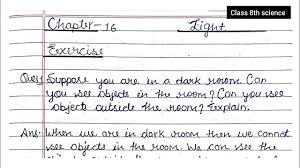 Class 8th science
Chapter-16 Light
Exercise
Ques: Suppose you are in a dark room. Can
you see objects in the room? Can you see
objects outside the room? Explain.
Ans:- When we are in dark room then we cannot
see objects in the room. We can see the